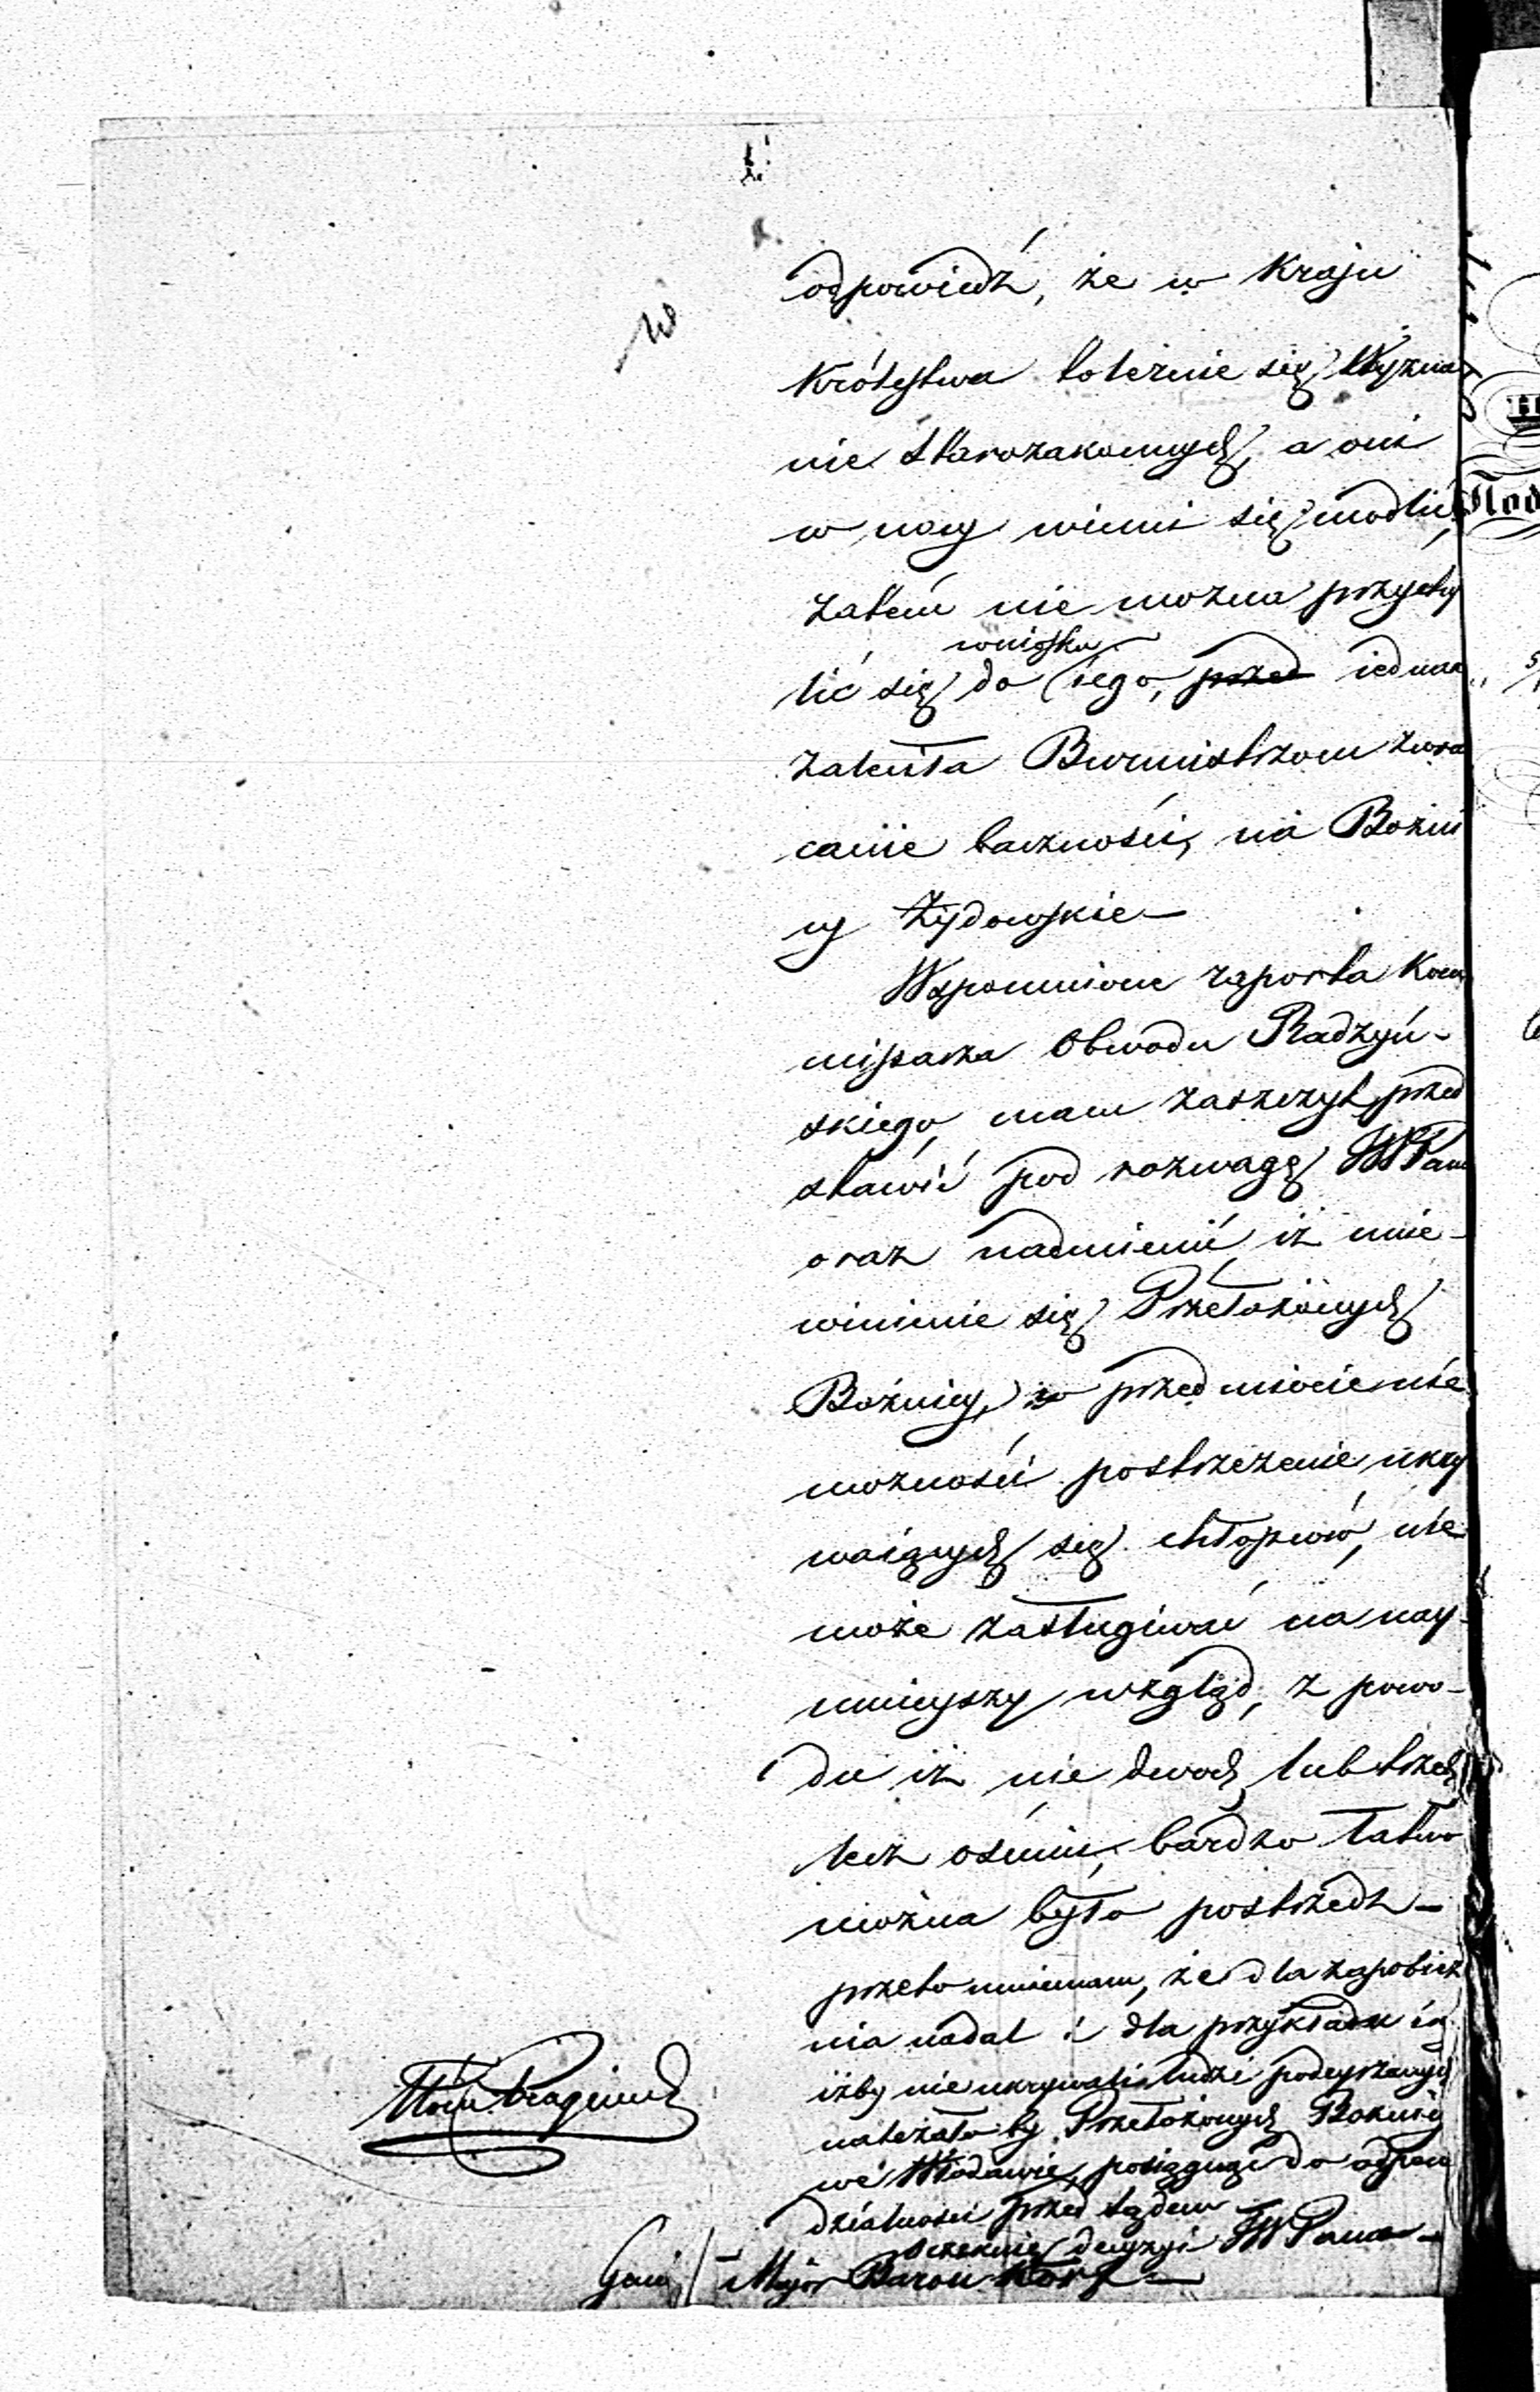 odpowiedź, że w Kraju
Królestwa toleruie się Wyzna
nie Starozakonnych, a oni
w nocy winni się modlić,
zatem nie można przychy
wniosku
lić się do iego, przed iednak
zaleciła Burmistrzom zwra
canie baczności, na Bożni
cy Żydowskie —
Wspomnione raporta Kom
missarza Obwodu Radzyń-
skiego, mam zaszczyt przed
stawić pod rozwagę JWPana
oraz nadmienić, iż unie-
winienie się Przełożonych
Bożnicy, w przedmiocie nie
możności postrzeżenie ukry
waiących się chłopców, nie
może zasługiwać na nay-
mnieyszy wzgląd, z powo-
du iż nie dwoch, lub trzech
lecz ośmiu, bardzo łatwo
można było postrzedz —
przeto mniemam, że dla zapobież
nia nadal i dla przykładu
iżby nie ukrywali ludzi podeyrzanych
należało by Przełożonych Bożnicy
we Włodawie, pociągnąć do odpow
dzialności przed Sądem
oczekuię decyzyi JWPana —
Major Baron Korf —